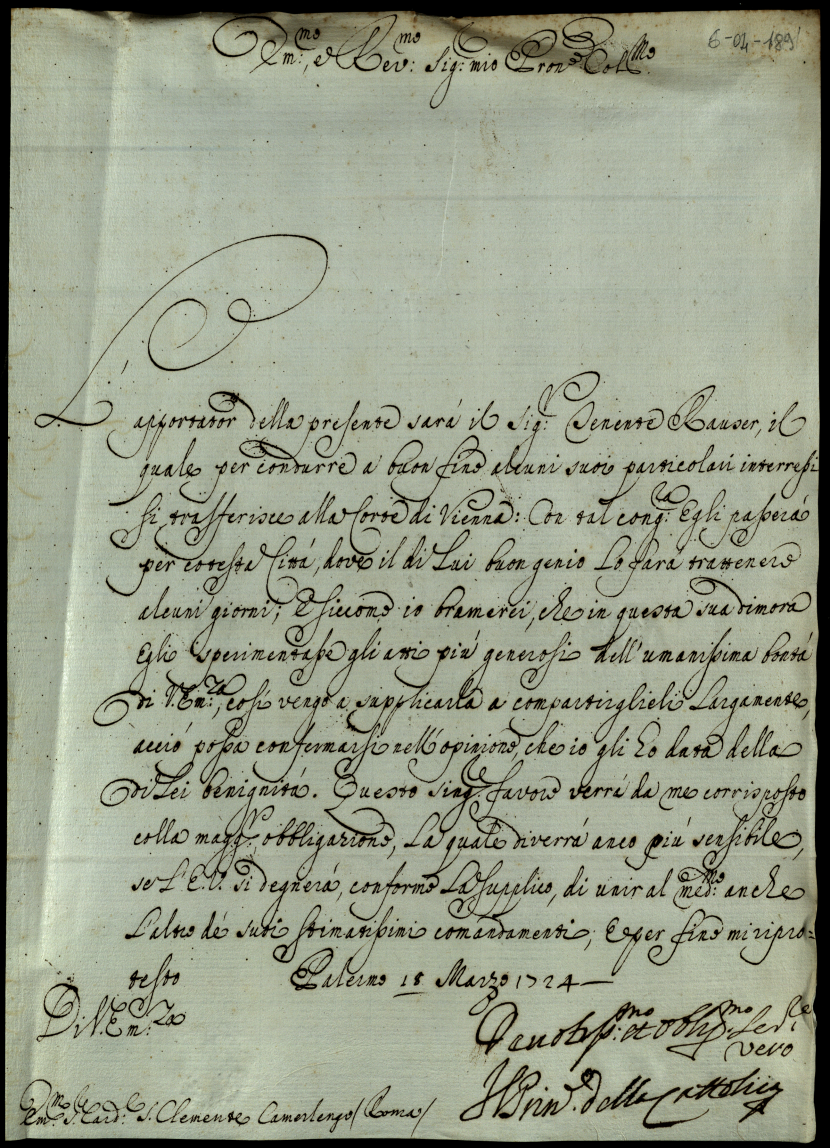 6-04-189
Em.mo, e Rev.mo Sig.r mio Pron.e Col.mo
L'apportator della presente sará il Sig.r Tenente Rauser, il
quale per condurre a buon fine alcuni suoi particolari interressi
si trasferisce alla Corte di Vienna: Con tal cong.ra Egli passerá
per cotesta Cittá, dove il di Lui buon genio Lo fará trattenere
alcuni giorni; E siccome io bramerei, che in questa sua dimora
Egli sperimentasse gli atti piú generosi dell'umanissima bontá
di V. Em.za, cosí vengo a supplicarla a compartirglieli Largamente,
acció possa confermarsi nell'opinione, che io gli ho data della
di Lei benignitá. Questo sing.le favore verrá da me corrisposto
colla magg.r obbligazione, La quale diverrá anco piú sensibile,
se L'E.V. si degnerá, conforme La supplico, di unir al med.mo anche
L'altro dé suoi stimatissimi comandamenti, E per fine mi ripro=
testo Palermo 18 Marzo 1724
Di V. Em.za
Devotiss.mo et Obblig.mo Ser.re
vero
Il Prin.e della Cattolica
Em.mo S.r Card.le S. Clemente Camerlengo (Roma)